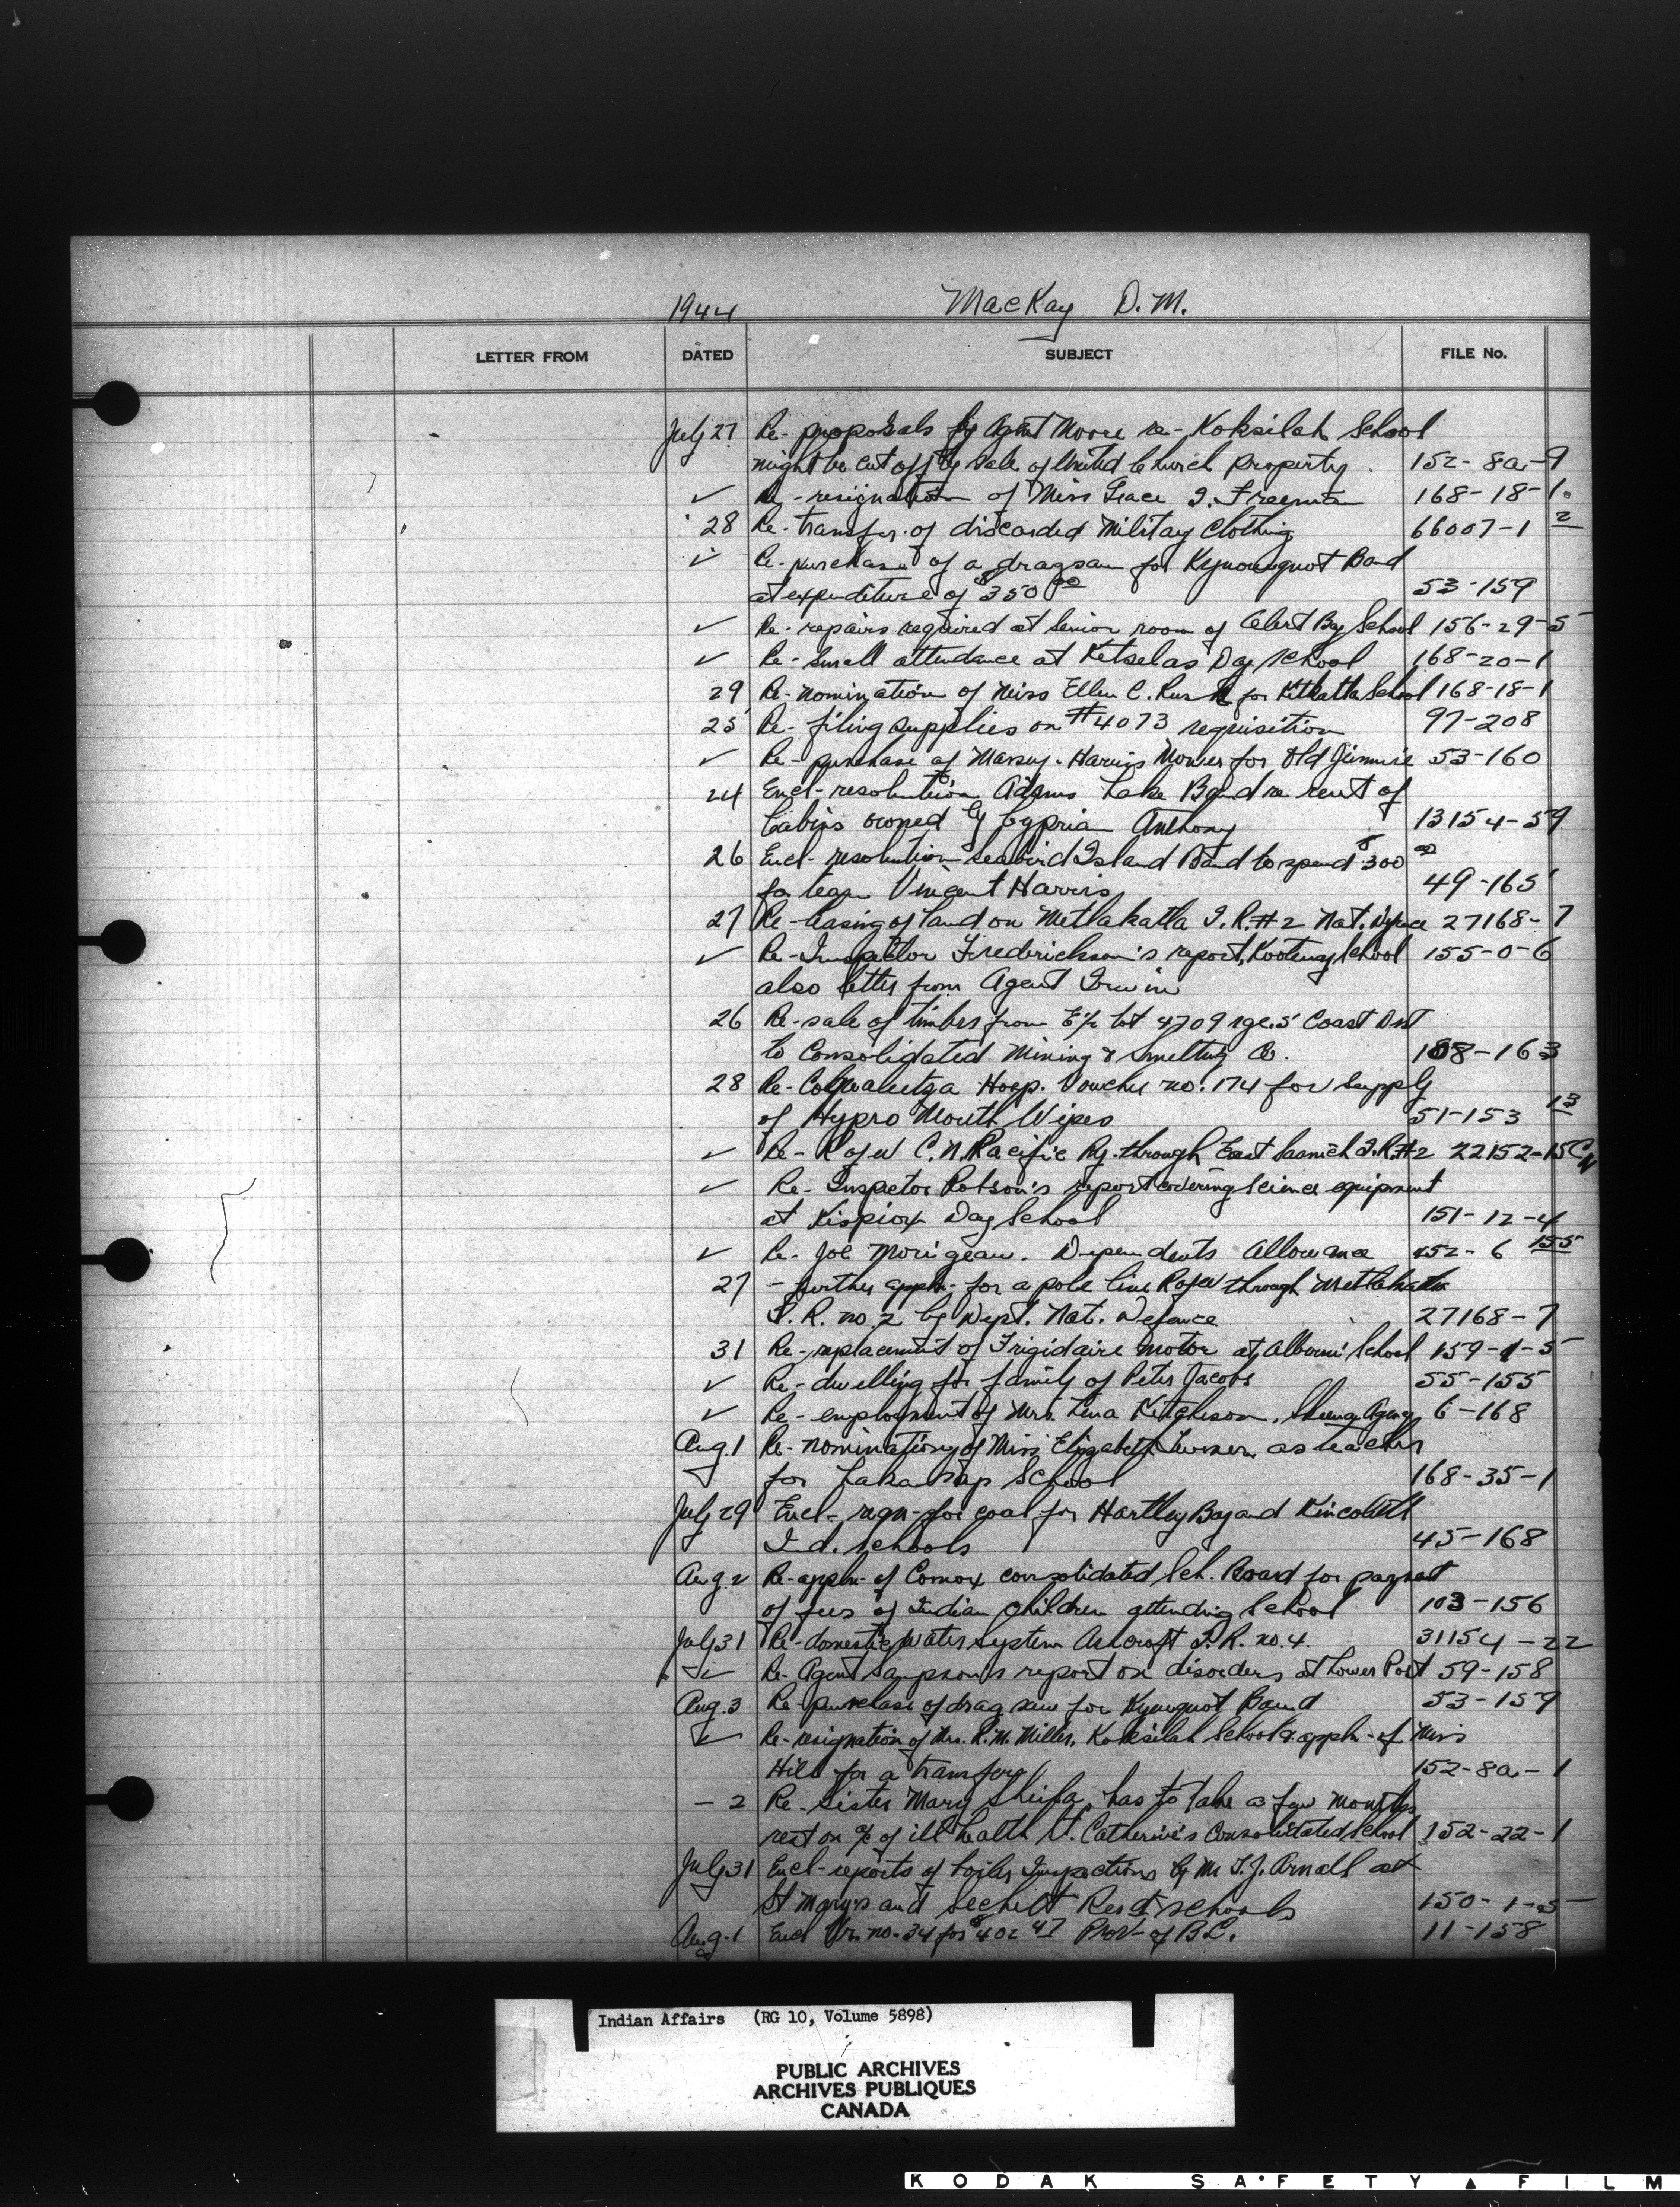 1944 MacKay D.M.
LETTER FROM DATED SUBJECT FILE No.
July 27 Re- proposals by Agent Moore re- Koksilah School
might be cut off by sale of United Church Property. 152-8a-9
✓ Re- resignation of Miss Grace I. Freeman 168-18-1
28 Re- transfer of discarded Military Clothing 66007-1 2
✓ Re- purchase of a dragsaw for Kyuouquot Band
at expenditure of $350 00 53-159
✓ Re- repairs required at senior room of Alert Bay School 156-29-5
✓ Re- small attendance at Kitselas Day School 168-20-1
29 Re- nomination of Miss Ellen C. Rush for Kitkatla School 168-18-1
25 Re- filing supplies on #4073 requisition 97-208
✓ Re- purchase of Massey-Harris Mower for Old Jimmie 53-160
24 Encl- resolution Adams Lake Band re rent of
Cabins owned by Cyprian Anthony 13154-59
26 Encl- resolution Seabird Island Band to spend $300 00
for team Vincent Harris 49-165
27 Re- leasing of land on Metlakatla I.R.#2 Nat. Defence 27168-7
✓ Re- Inspector Frederickson's report, Kootenay School 155-0-6
also letter from Agent Irwin
26 Re- sale of timber from E½ Lot 4709 rge. 5 Coast Dist
to Consolidated Mining & Smelting Co. 108-163
28 Re- Coqualeetza Hosp. Voucher no. 174 for supply
of Hypro Mouth Wipes 51-153 13
✓ Re- R of W C.N. Pacific Ry. through East Saanich I.R.#2 22152-15CN
✓ Re- Inspector Robson's report covering science equipment
at Kispiox Day School 151-12-4
✓ Re- Joe Morigeau. Dependents Allowance 452-6 155
27 - further appln- for a pole line R of W through Metlakatla
I.R. no. 2 by Dept. Nat. Defence 27168-7
31 Re- replacement of Frigidaire motor at Alberni School 159-1-5
✓ Re- dwelling for family of Peter Jacobs 55-155
✓ Re- employment of Mrs. Lena Kitchison, Skeena Agency 6-168
Aug. 1 Re- nomination of Miss Elizabeth Turner as teacher
✓ for Lakalsap School 168-35-1
July 29 Encl- reqn- for coal for Hartley Bay and Kincolith
Ind. Schools 45-168
Aug. 2 Re- appln- of Comox consolidated Sch. Board for payment
of fees of Indian children attending School 103-156
July 31 Re- domestic water system Ashcroft I.R. no. 4. 31154-22
✓ Re- Agent Sampson's report on disorders at Lower Post 59-158
Aug. 3 Re- purchase of drag saw for Kyuquot Band 53-159
✓ Re- resignation of Mrs. R.M. Miller, Koksilah School & appln- of Miss
Hill for a transfer 152-8a-1
- 2 Re- Sister Mary Sheila, has to take a few months
rest on a/c of ill health St. Catherine's Consolidated School 152-22-1
July 31 Encl- reports of boiler Inspections by Mr T.J. Arnall at
St Mary's and Sechelt Resd. schools 150-1-5
Aug. 1 Encl Vr. no. 34 for $402 47 Prov- of B.C. 11-158
Indian Affairs (RG 10, Volume 5898)
PUBLIC ARCHIVES
ARCHIVES PUBLIQUES
CANADA
KODAK SAFETY FILM